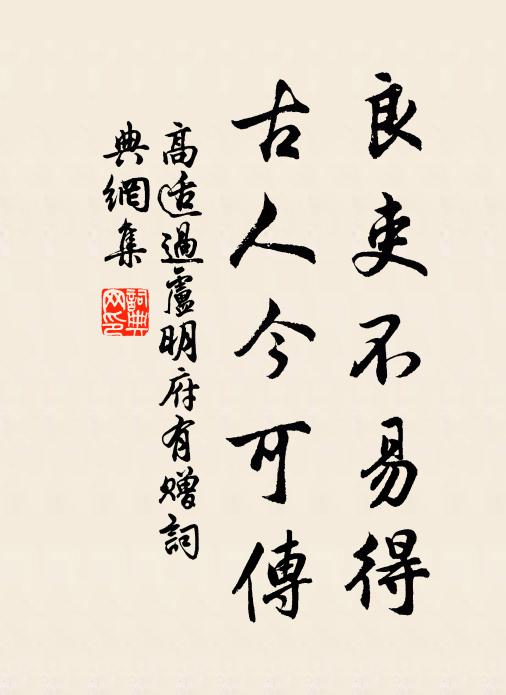 良吏不易得
古人今可傳
高適過盧明府有贈詞
典網集
詞典網印